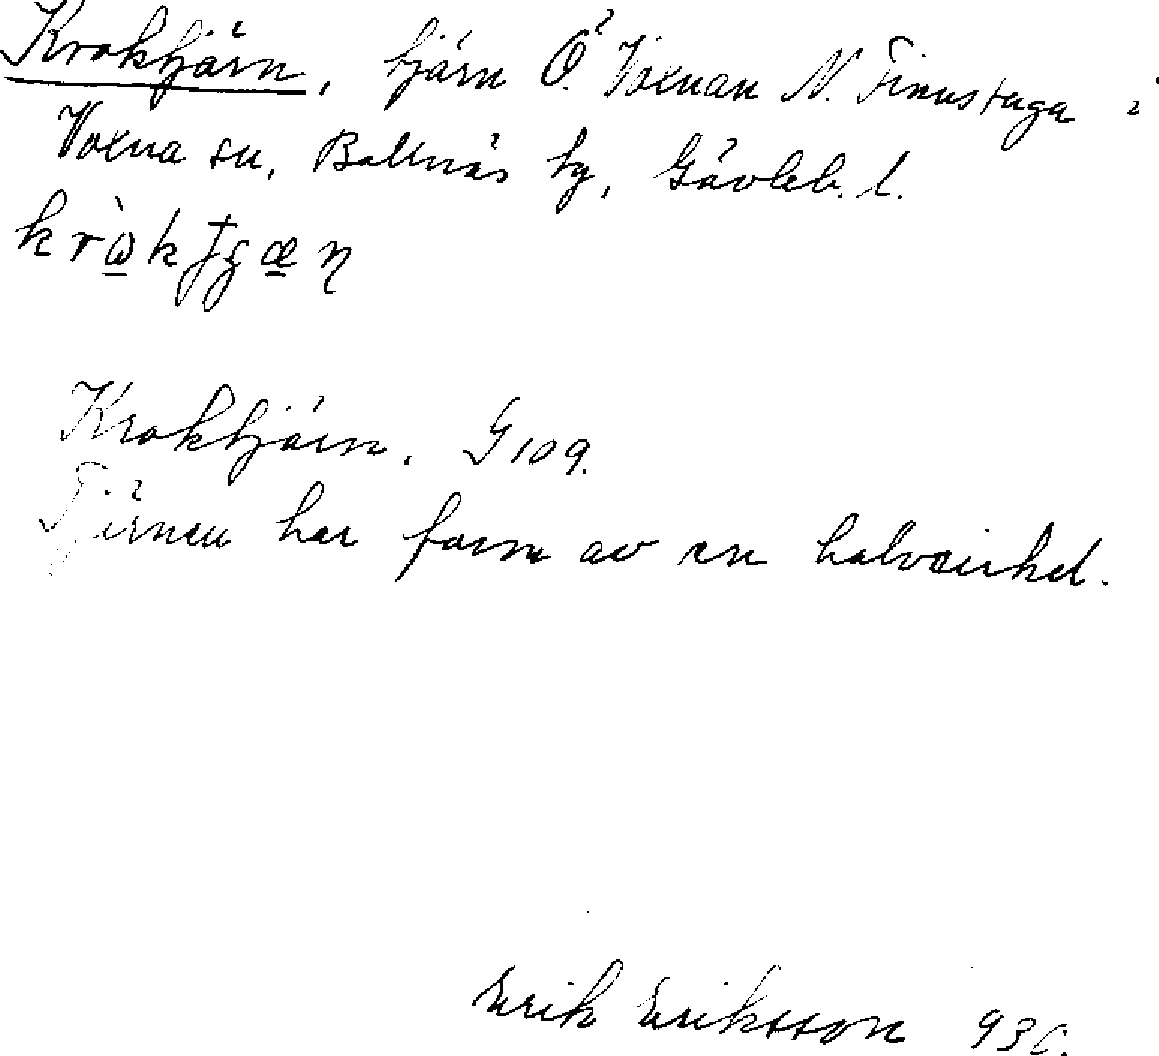 Kroktjärn, tjärn Ö. Voxnan N. Finnstuga i
Voxna sn, Bollnäs hg, Gävleb. l.
Kroktjärn. G 109.
Tjärnen har form av en halvcirkel.
Erik Eriksson